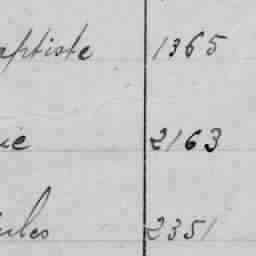 aptiste 1365
ie 2163
ules 2351